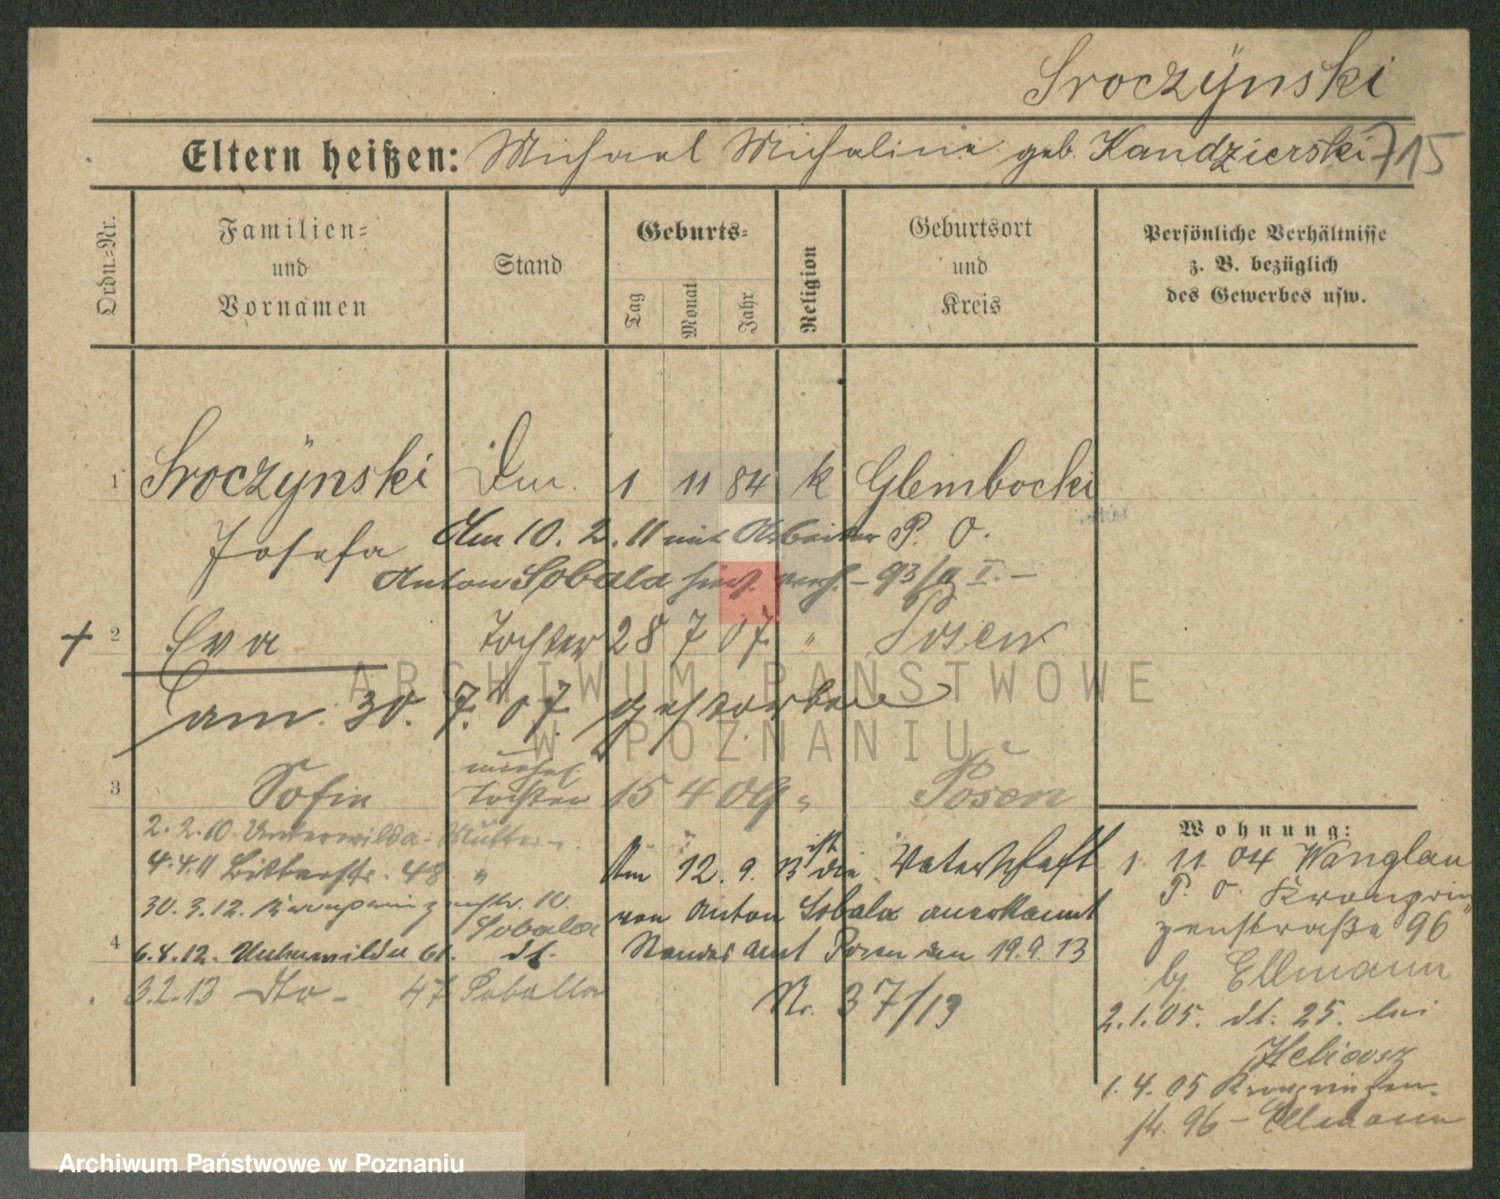 Sroczÿnski
Eltern heißen: Michael Michaline geb. Kandzierski 715
Ordn.-Nr.
Familien- und Vornamen
Stand
Geburts-
Tag
Monat
Jahr
Religion
Geburtsort und Kreis
Persönliche Verhältnisse z. B. bezüglich des Gewerbes usw.
1 Sroczÿnski 1 11 84 k Glembocki
Josefa Am 10. 2. 11 mit Arbeiter P. O.
Anton Sobala hier verh. – 93/11 I. –
+ 2 Eva Tochter 28 7 07 " Posen
am 30. 7. 07. gestorben
3 Sofie Tochter 15 4 09 " Posen
2. 2. 10. Unterwilda Mutter
4. 4. 11 Bitterstr. 48 "
Am 12. 9. 13 ist die Vaterschaft
30. 3. 12. Kronprinzenstr. 10. Sobala
von Anton Sobala anerkannt
4 6. 8. 12. Unterwilda 61. dt.
Standesamt Posen den 19. 9. 13
3.2.13 dto – 47 Soballa
Nr. 37/13
Wohnung:
1. 11 04 Wanglau
P. O. Kronprin
zenstraße 96
bj Ellmann
2. 1. 05. dt. 25. bei
1. 4. 05 Kronprinzen-
str. 96 – Ellmann
ARCHIWUM PAŃSTWOWE
W POZNANIU
Archiwum Państwowe w Poznaniu